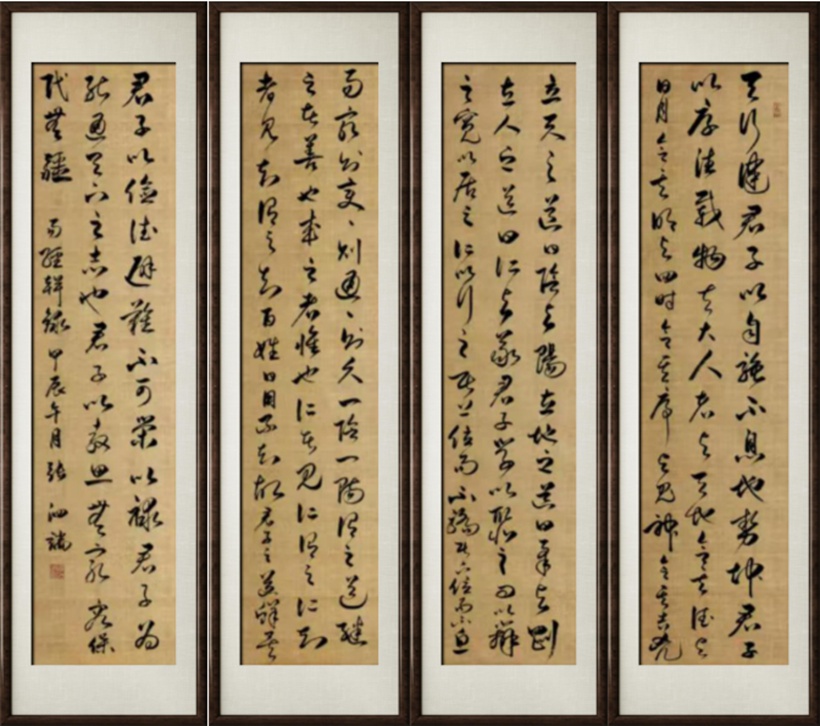 天行健君子以自強不息地勢坤君子
以厚德載物夫大人者與天地合其德與
日月合其明與四時合其序與鬼神合其吉凶
立天之道曰陰與陽立地之道曰柔與剛
立人之道曰仁與義君子學以聚之問以辯
之寬以居之仁以行之居上位而不驕在下位而不憂
易窮則變、則通、則久一陰一陽謂之道繼
之者善也成之者性也仁者見仁謂之仁知
者見知謂之知百姓日用不知故君子之道鮮矣
君子以儉德避難不可榮以祿君子為
能通天下之志也君子以教思無窮容保
民無疆 易經輯錄 甲辰午月 張泗